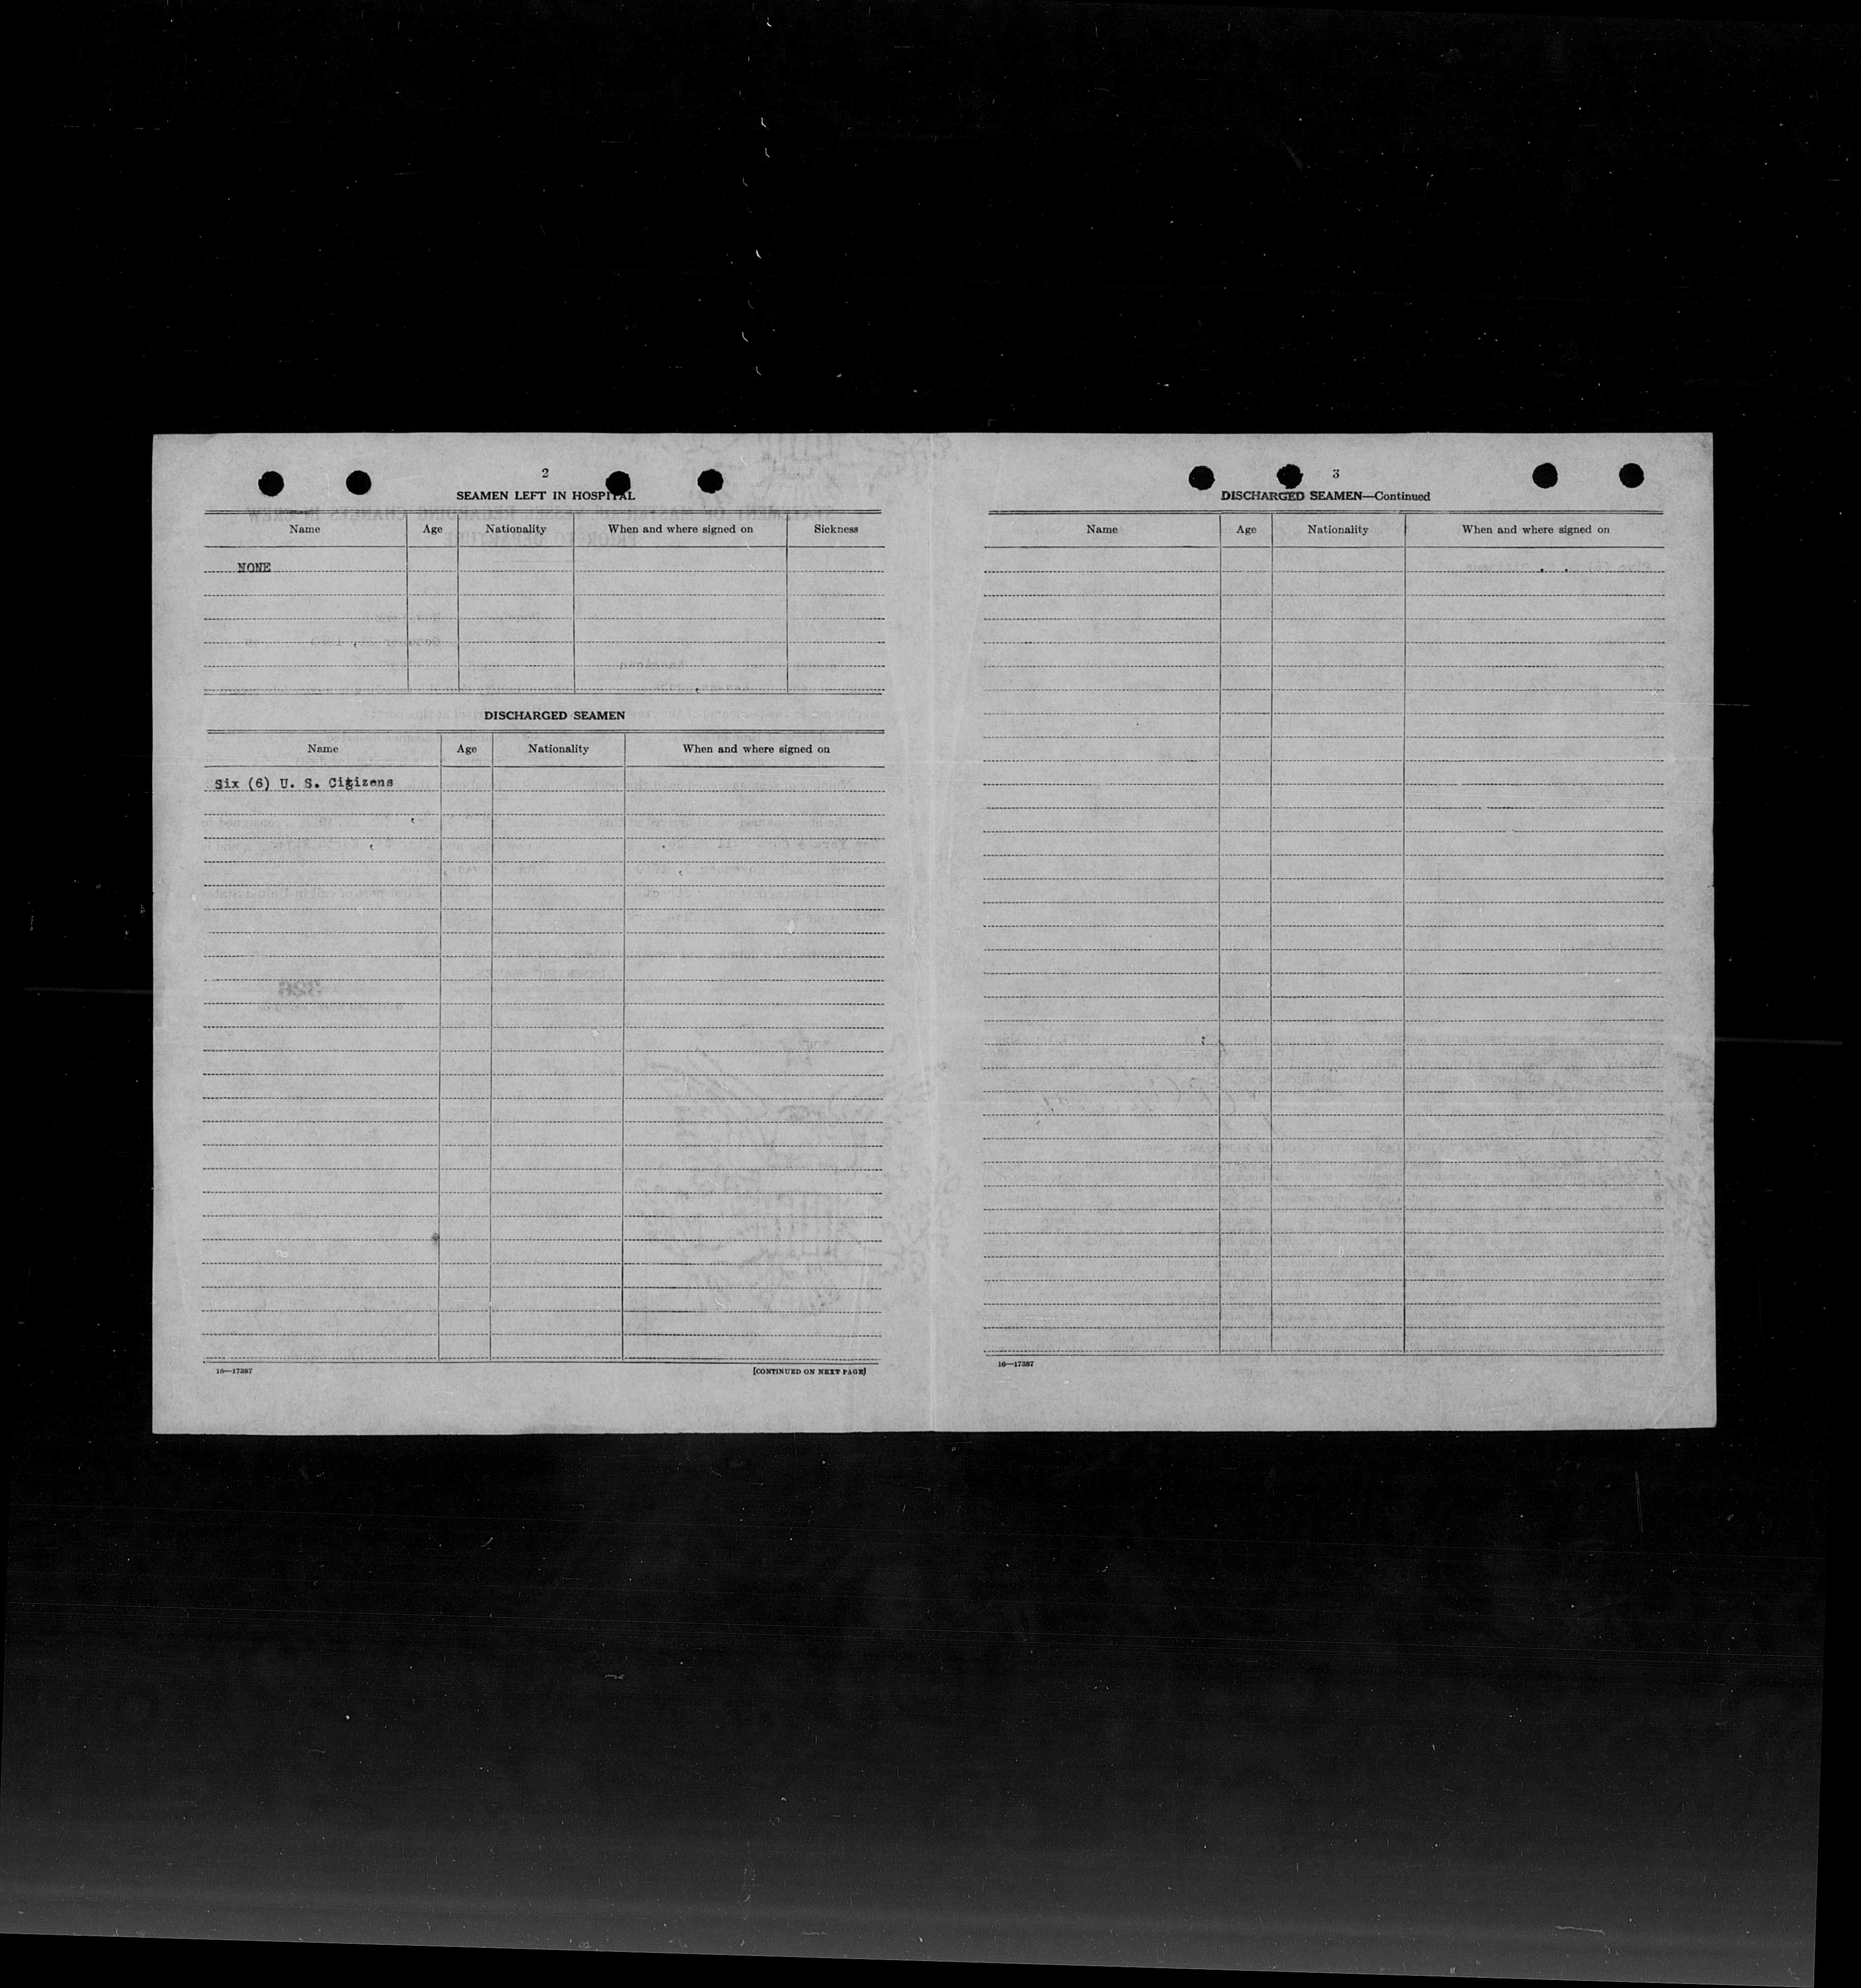 2
SEAMEN LEFT IN HOSPITAL
Name Age Nationality When and where signed on Sickness
NONE
DISCHARGED SEAMEN
Name Age Nationality When and where signed on
Six (6) U. S. Citizens
16—17387
[CONTINUED ON NEXT PAGE]
3
DISCHARGED SEAMEN—Continued
Name Age Nationality When and where signed on
16—17387